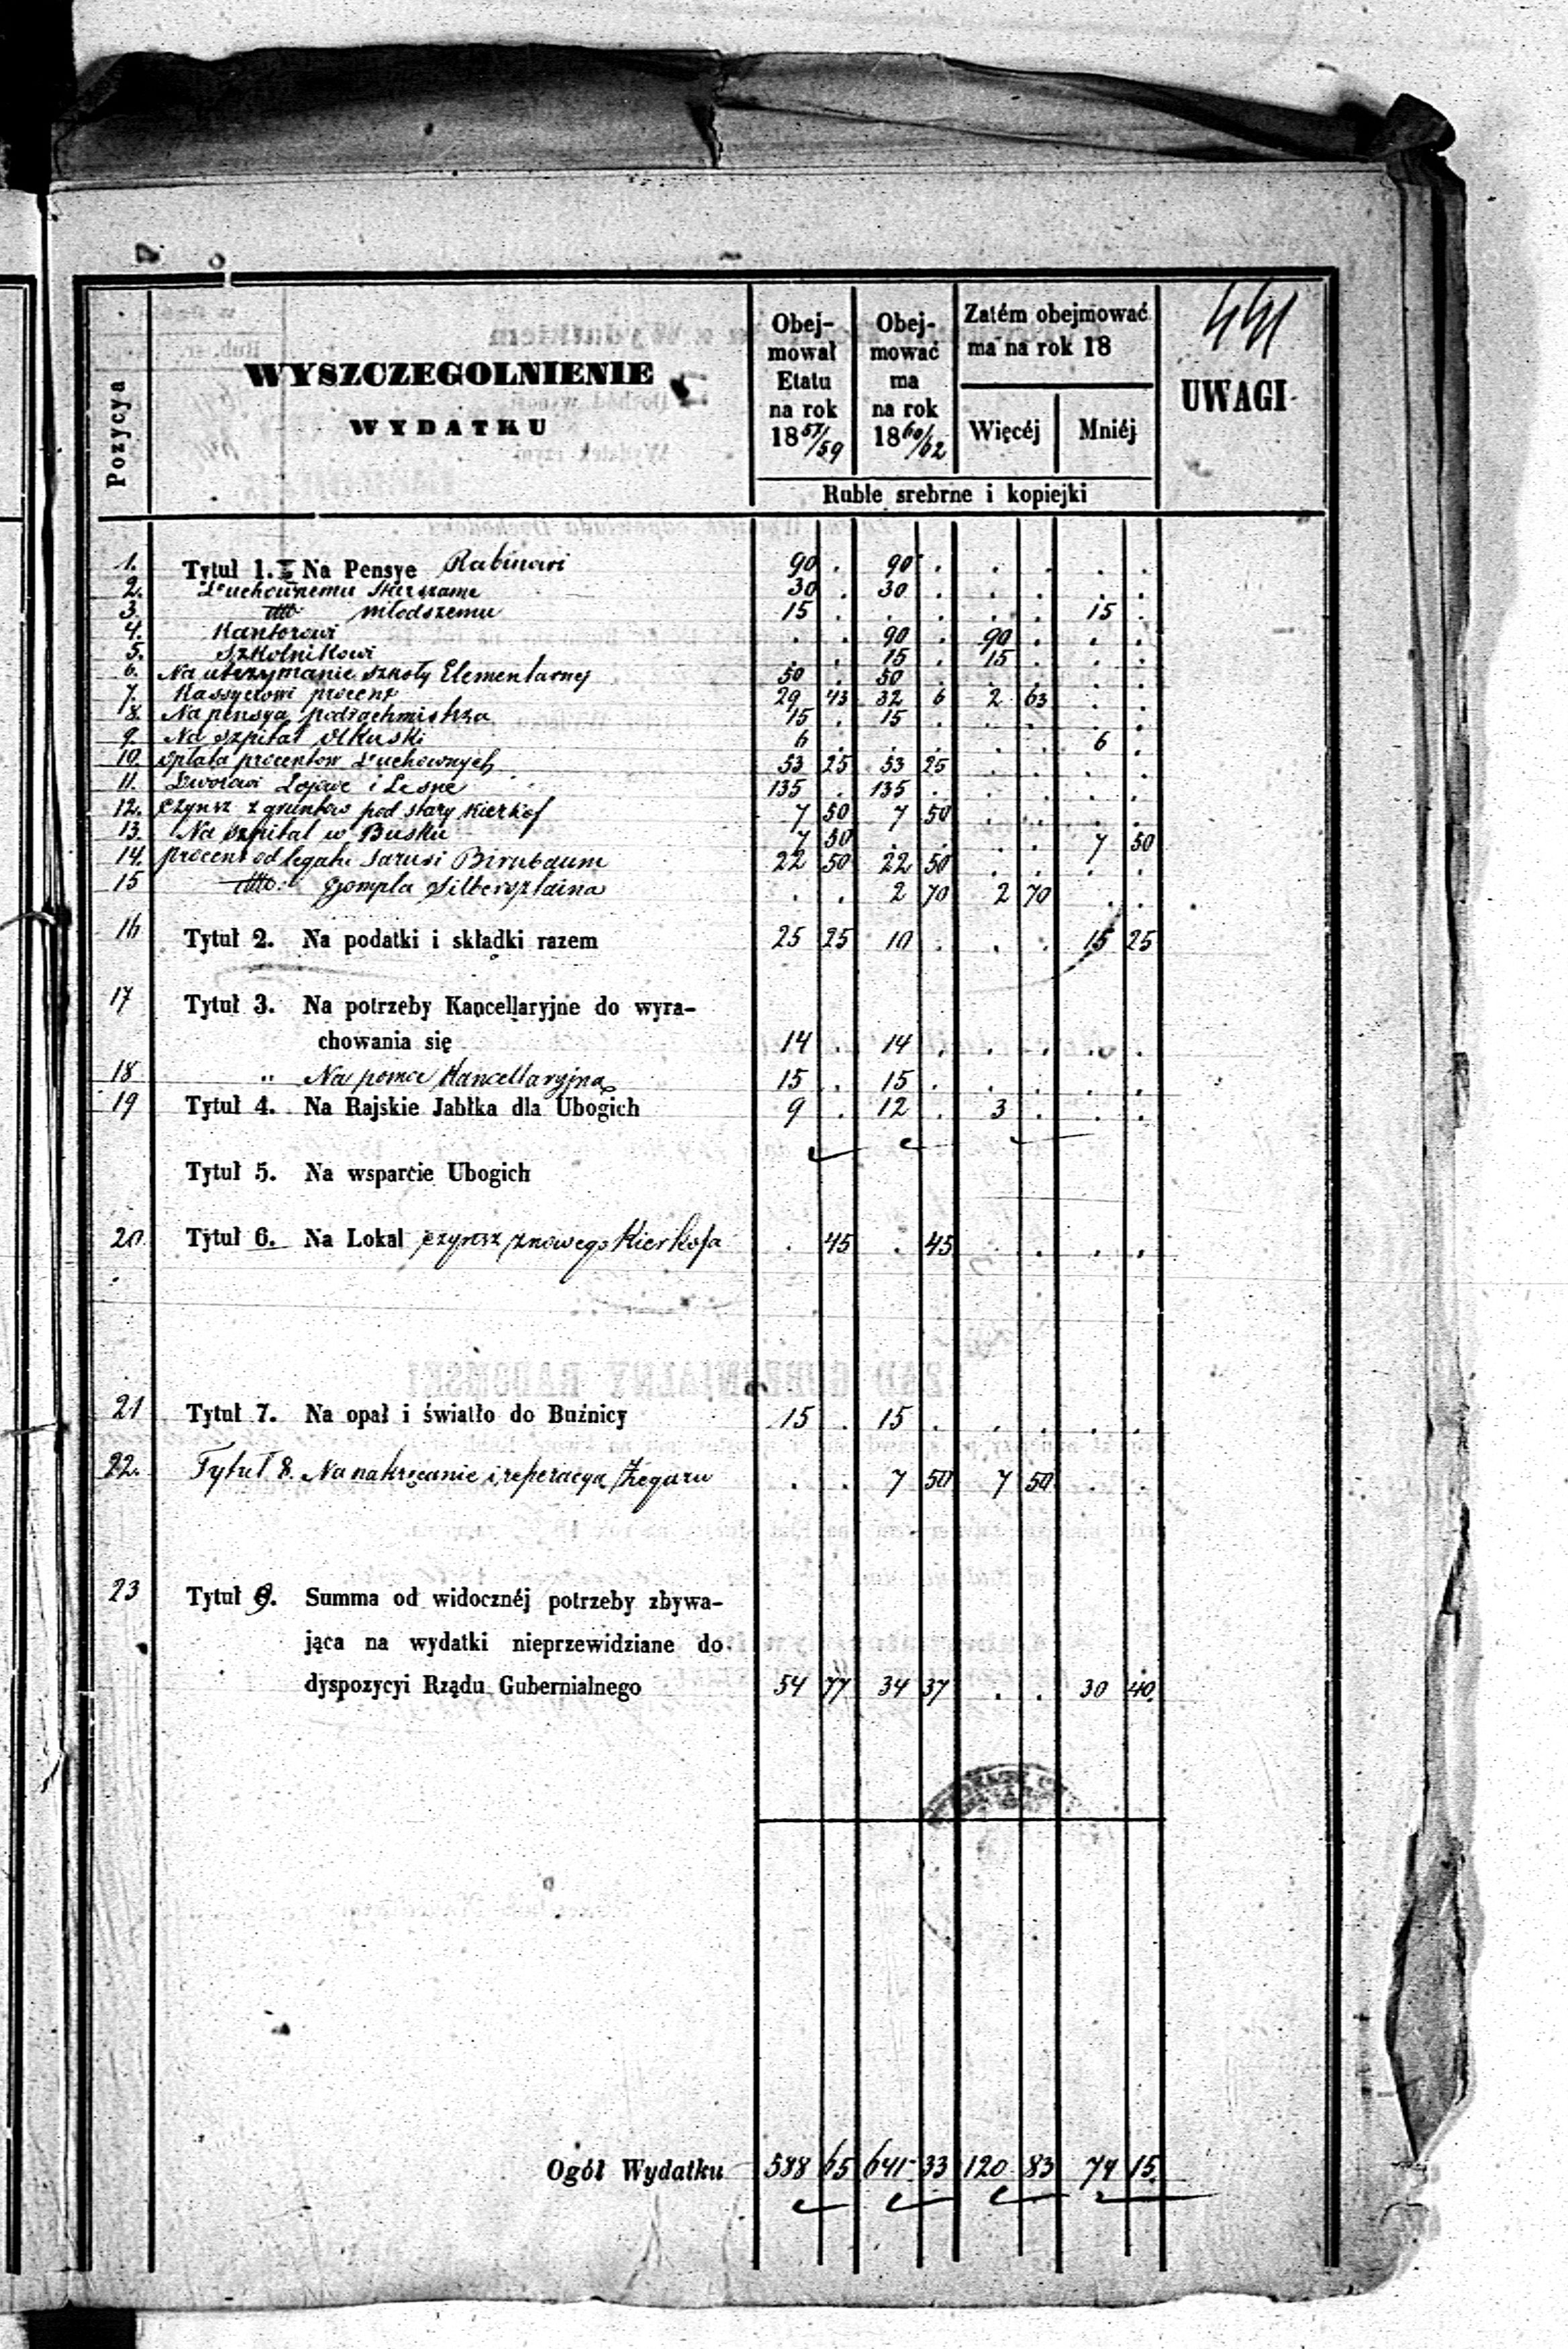 441
Pozycya
WYSZCZEGOLNIENIE
WYDATKU
Obej-
mował
Etatu
na rok
18 57/59
Obej-
mować
ma
na rok
18 60/62
Zatém obejmować
ma na rok 18
Więcéj
Mniéj
UWAGI
Ruble srebrne i kopiejki
1. Tytuł 1. Na Pensye Rabinowi 90 . 90 . . . . .
2. Duchownemu Starszemu 30 . 30 . . . . .
3. ditto młodszemu 15 . . . . . 15 .
4. Kantorowi . . 90 . 90 . . .
5. Szkolnikowi . . 15 . 15 . . .
6. Na utrzymanie szkoły Elementarnej 50 . 50 . . . . .
7. Kassyerowi procent 29 43 32 6 2 63 . .
8. Na pensyą podrachmistrza 15 . 15 . . . . .
9. Na szpital olkuski 6 . . . . . 6 .
10. opłata procentow Duchownych 53 25 53 25 . . . .
11. Dworowi i Leśne 135 . 135 . . . . .
12. Czynsz z gruntów pod stary Kierkof 7 50 7 50 . . . .
13. Na szpital w Busku 7 50 . . . . 7 50
14. procent od legatu Sarusi Birnbaum 22 50 22 50 . . . .
15 ditto Gompla Silbersztaina . . 2 70 2 70 . .
16 Tytuł 2. Na podatki i składki razem 25 25 10 . . . 15 25
17 Tytuł 3. Na potrzeby Kancellaryjne do wyra-
chowania się 14 . 14 . . . . .
18 " Na pomoc Kancellaryjną 15 . 15 . . . . .
19 Tytuł 4. Na Rajskie Jabłka dla Ubogich 9 . 12 . 3 . . .
Tytuł 5. Na wsparcie Ubogich
20 Tytuł 6. Na Lokal czynsz z nowego Kierkofa . 45 . 45 . . . .
21 Tytuł 7. Na opał i światło do Buźnicy 15 . 15 . . . . .
22. Tytuł 8. Na nakręcanie i reperacyą Zegaru . . 7 50 7 50 . .
23 Tytuł 9. Summa od widocznéj potrzeby zbywa-
jąca na wydatki nieprzewidziane do
dyspozycyi Rządu Gubernialnego 54 77 34 37 . . 30 40
Ogół Wydatku 588 65 641 33 120 83 74 15